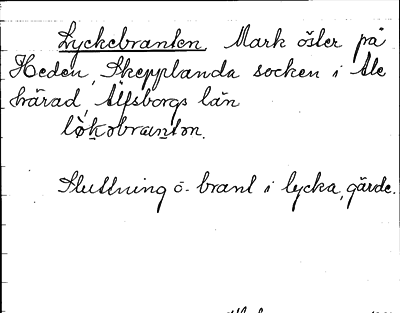 Lyckebranten. Mark öster på
Heden, Skepplanda socken i Ale
härad, Älfsborgs län
Sluttning ö. brant i lycka, gärde.